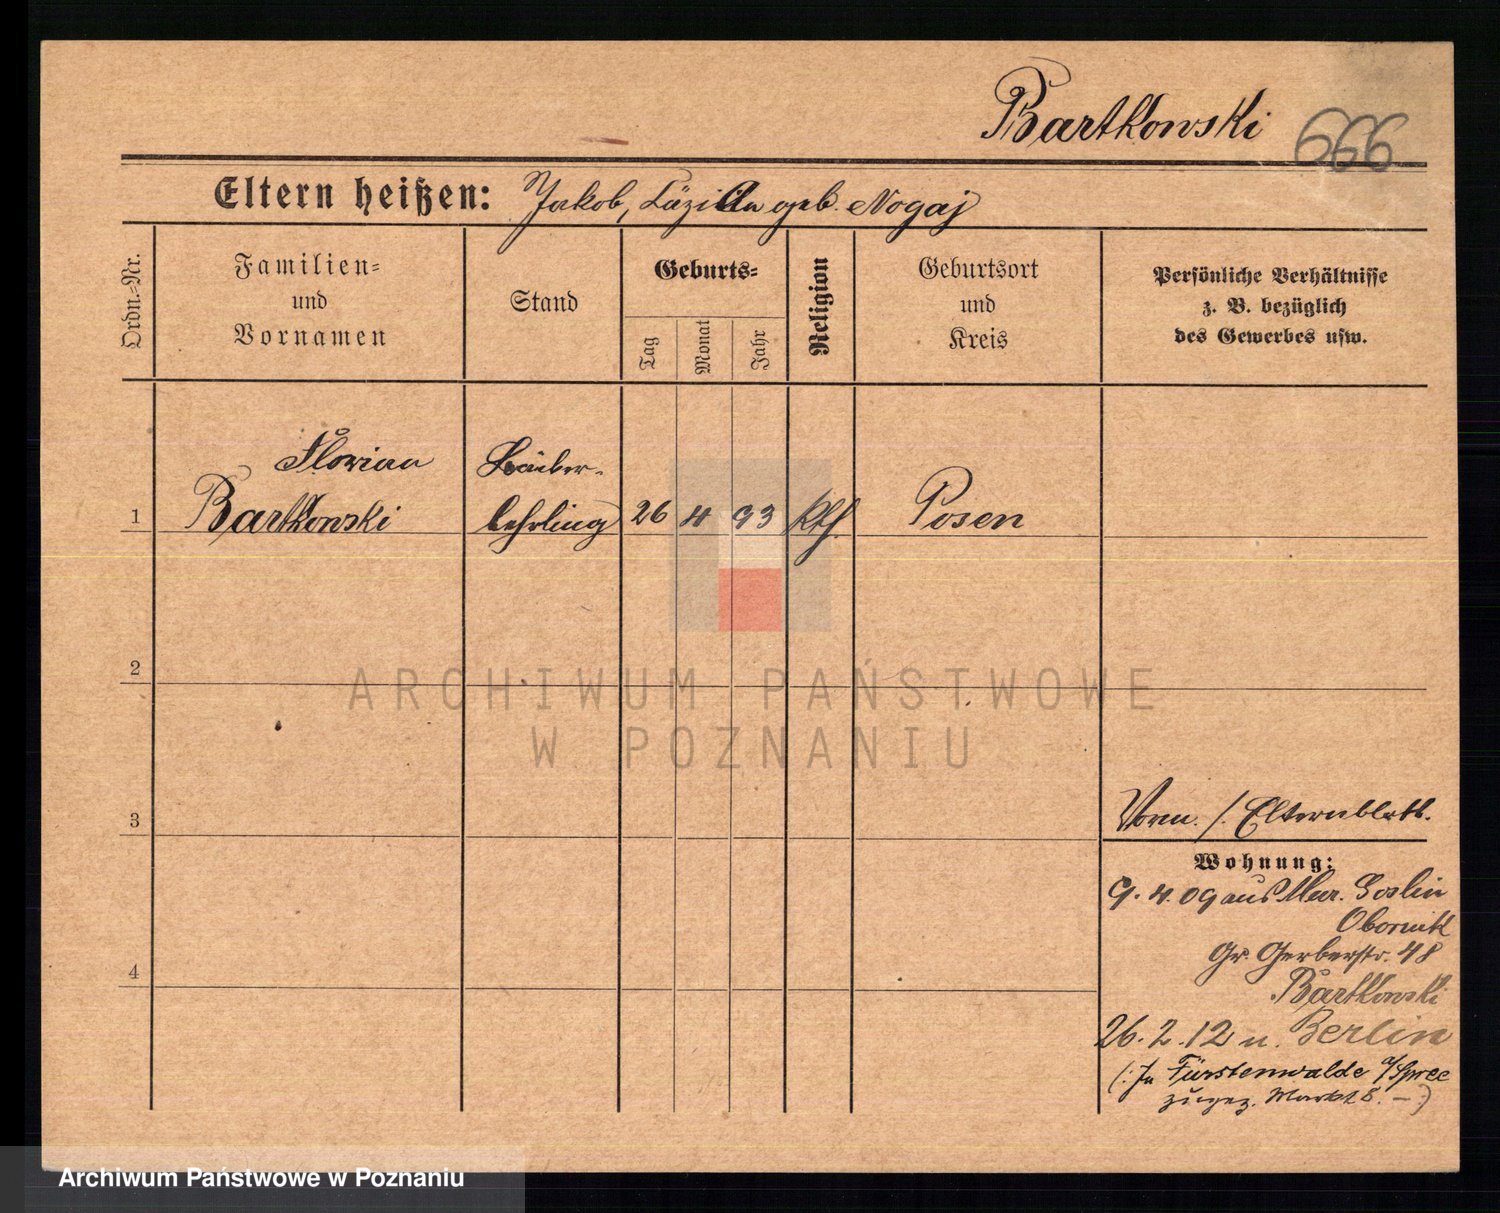 Bartkowski 666
Eltern heißen: Jakob, Luzia geb. Nogaj
Ordn.=Nr.
Familien=
und
Vornamen
Stand
Geburts=
Tag
Monat
Jahr
Religion
Geburtsort
und
Kreis
Persönliche Verhältnisse
z. B. bezüglich
des Gewerbes usw.
Florian
1 Bartkowski
lehrling 26 4 93 kth Posen
2
ARCHIWUM PAŃSTWOWE
W POZNANIU
3
Vorm. /. Elternblatt.
Wohnung:
9.4.09 aus Mur. Goslin
Obornik
Gr. Gerberstr. 48
Bartkowski
4
26.2.12 n. Berlin
(: In Fürstenwalde a/Spree
zugez. Markt 8. – :)
Archiwum Państwowe w Poznaniu